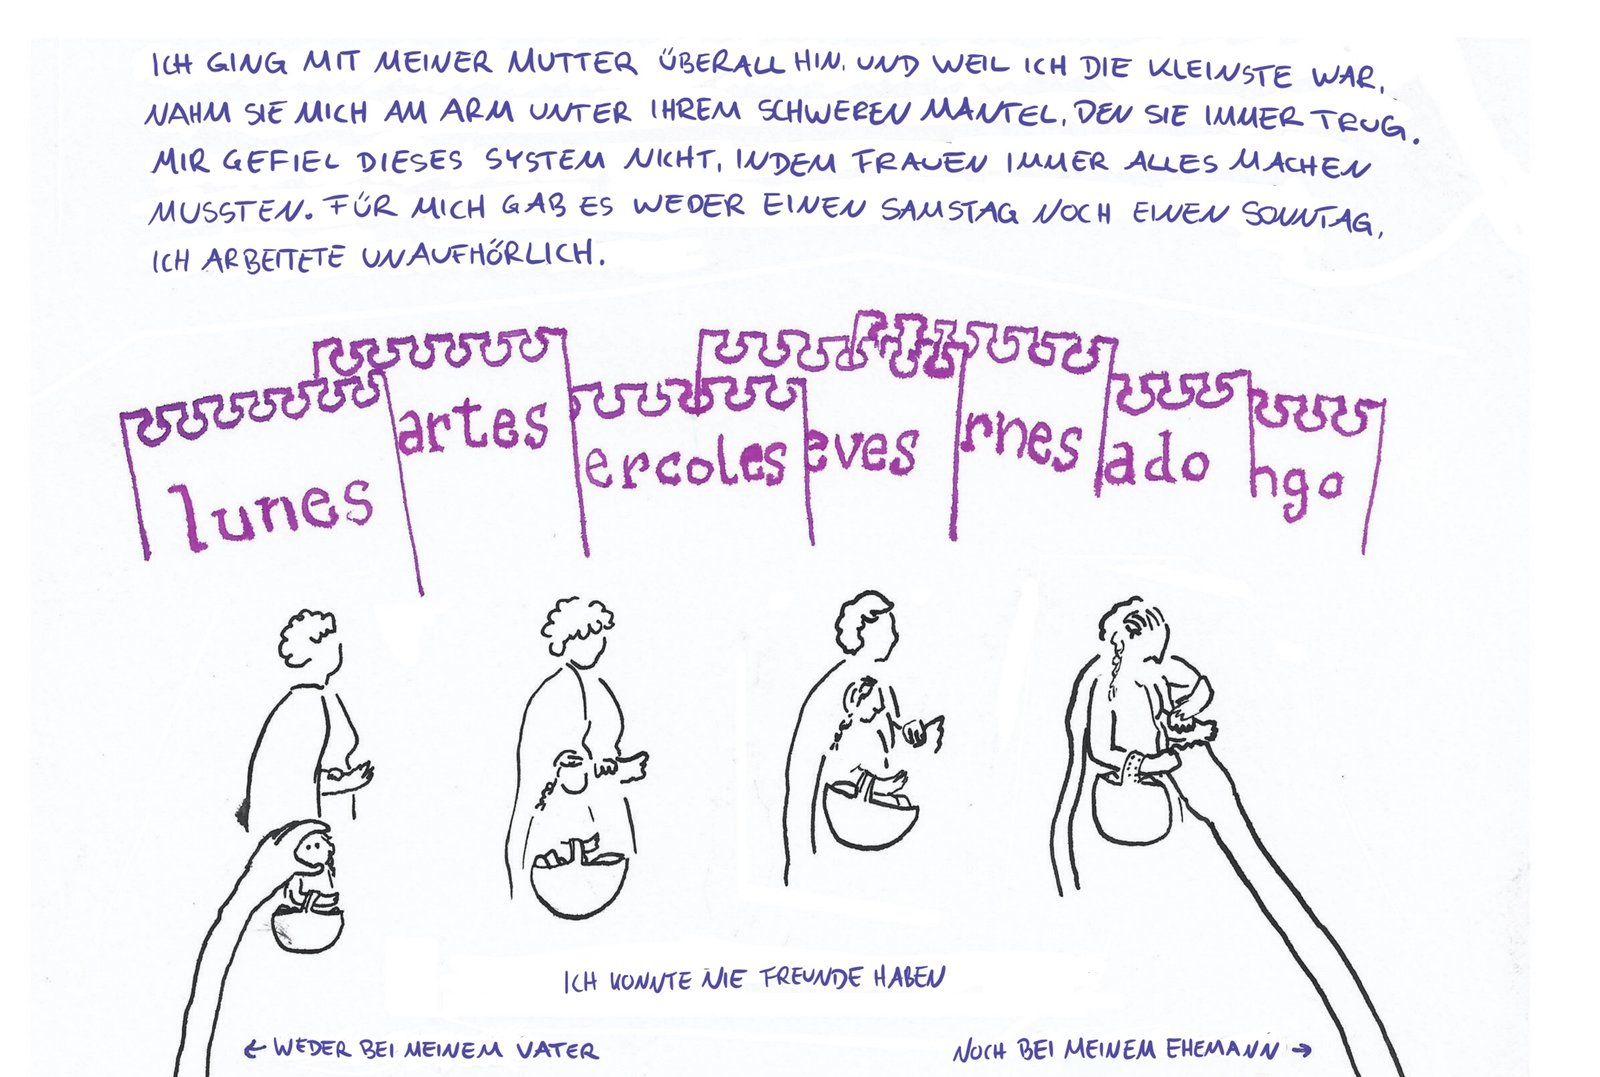 ICH GING MIT MEINER MUTTER ÜBERALL HIN, UND WEIL ICH DIE KLEINSTE WAR,
NAHM SIE MICH AM ARM UNTER IHREM SCHWEREN MANTEL, DEN SIE IMMER TRUG.
MIR GEFIEL DIESES SYSTEM NICHT, INDEM FRAUEN IMMER ALLES MACHEN
MUSSTEN. FÜR MICH GAB ES WEDER EINEN SAMSTAG NOCH EINEN SONNTAG,
ICH ARBEITETE UNAUFHÖRLICH.
lunes artes ercoles eves rnes ado ngo
ICH KONNTE NIE FREUNDE HABEN
← WEDER BEI MEINEM VATER
NOCH BEI MEINEM EHEMANN →